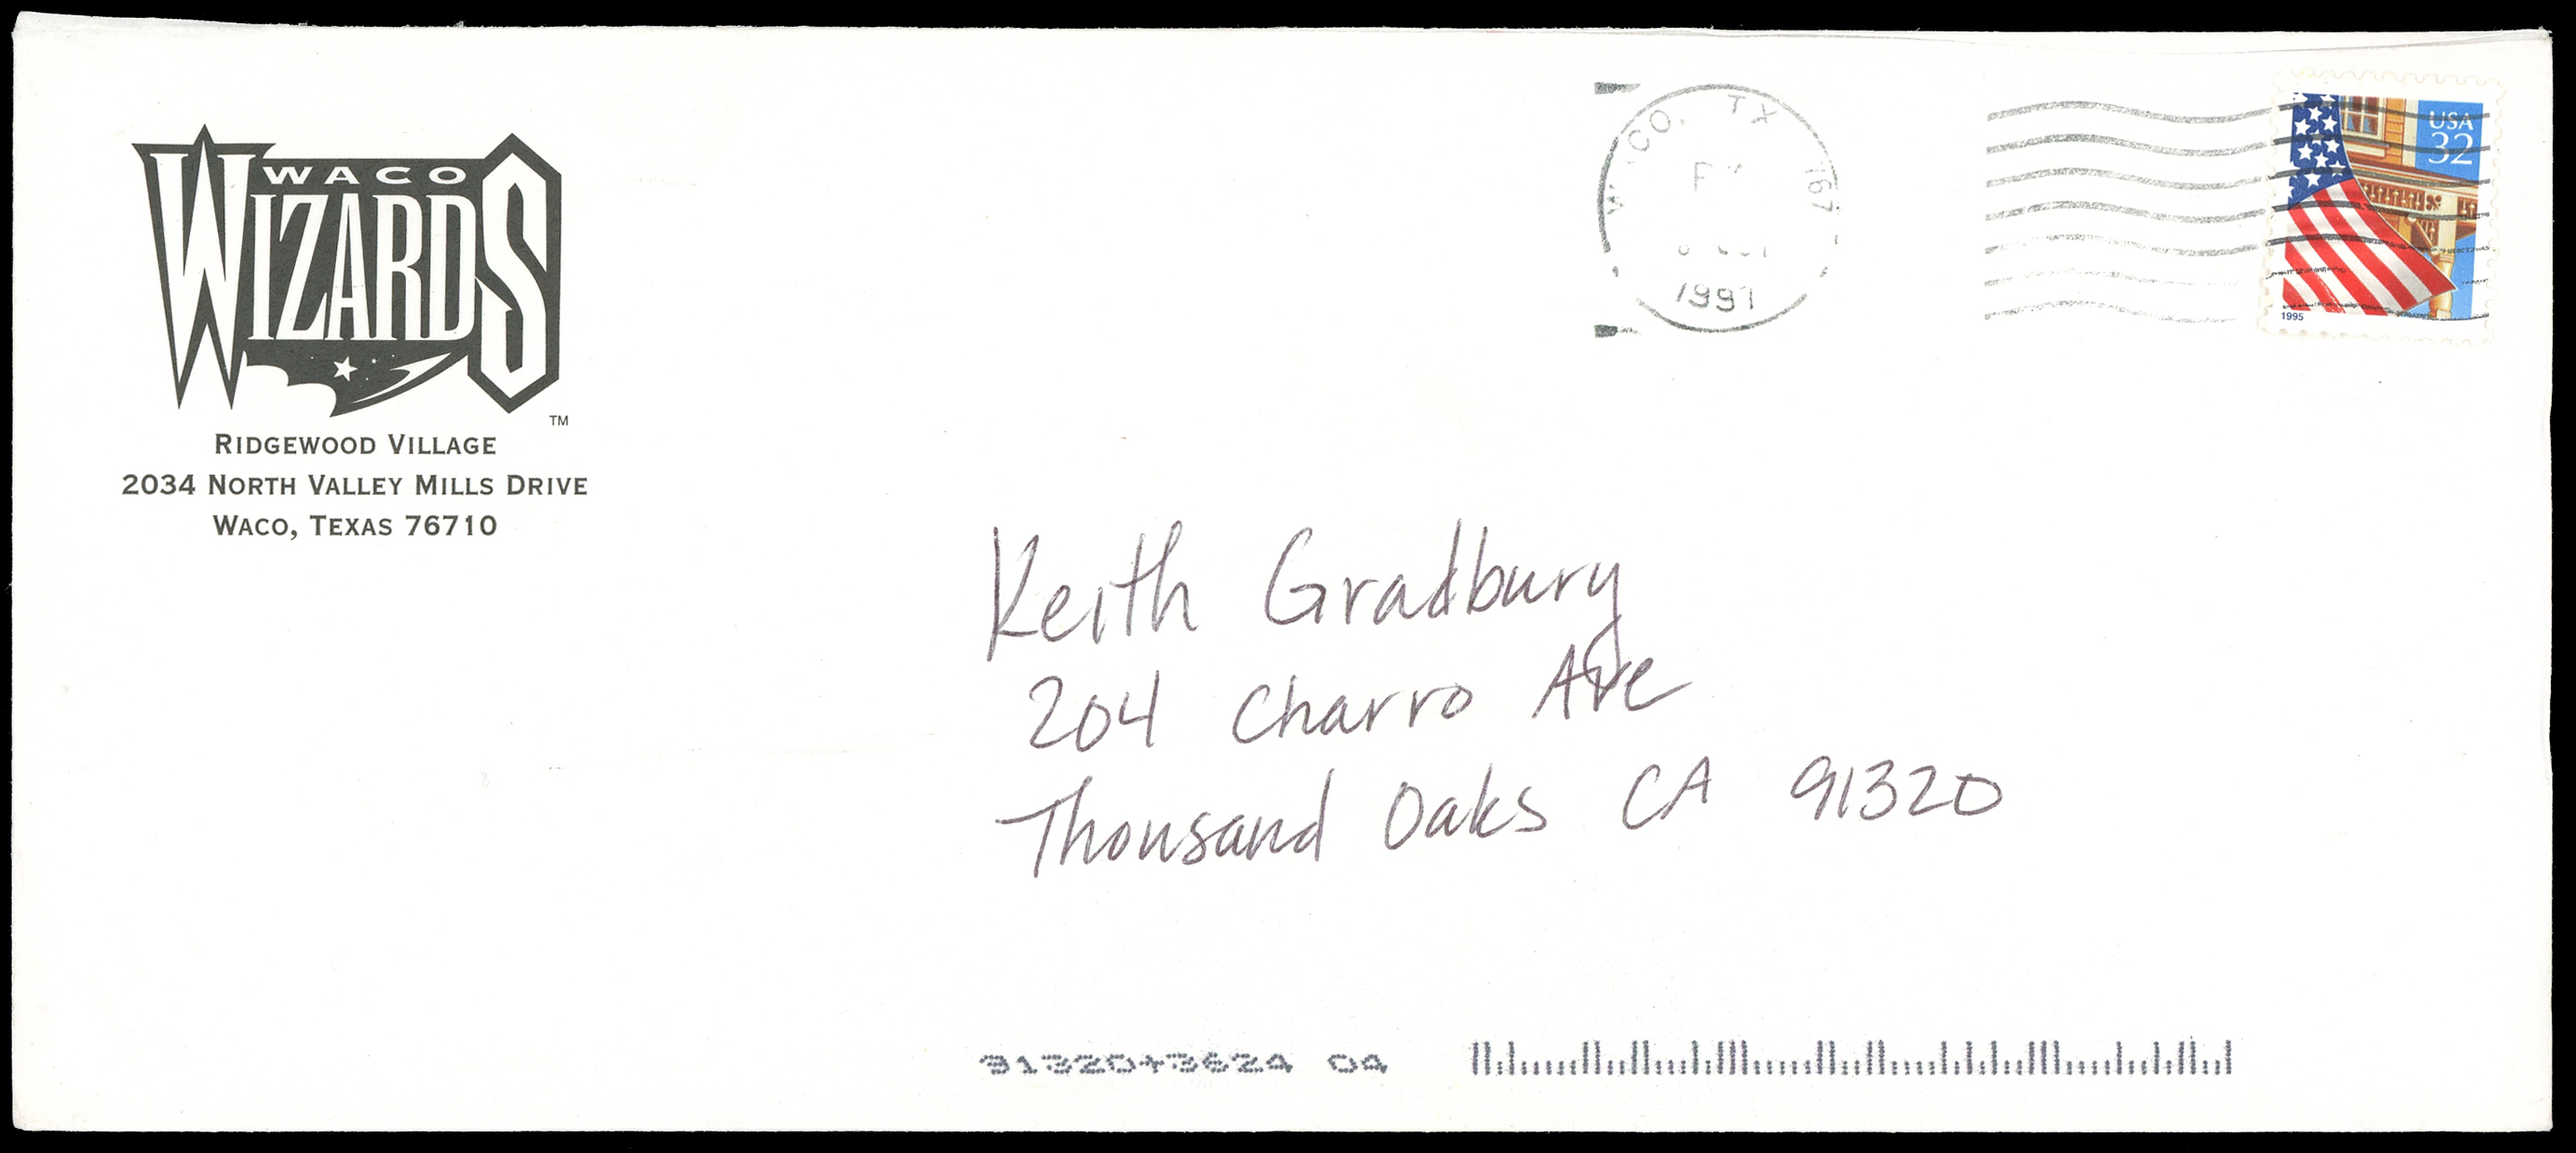 WACO
WIZARDS
TM
RIDGEWOOD VILLAGE
2034 NORTH VALLEY MILLS DRIVE
WACO, TEXAS 76710
WACO, TX 767
1997
USA
32
1995
Keith Gradbury
204 Charro Ave
Thousand Oaks CA 91320
91320+3624 04